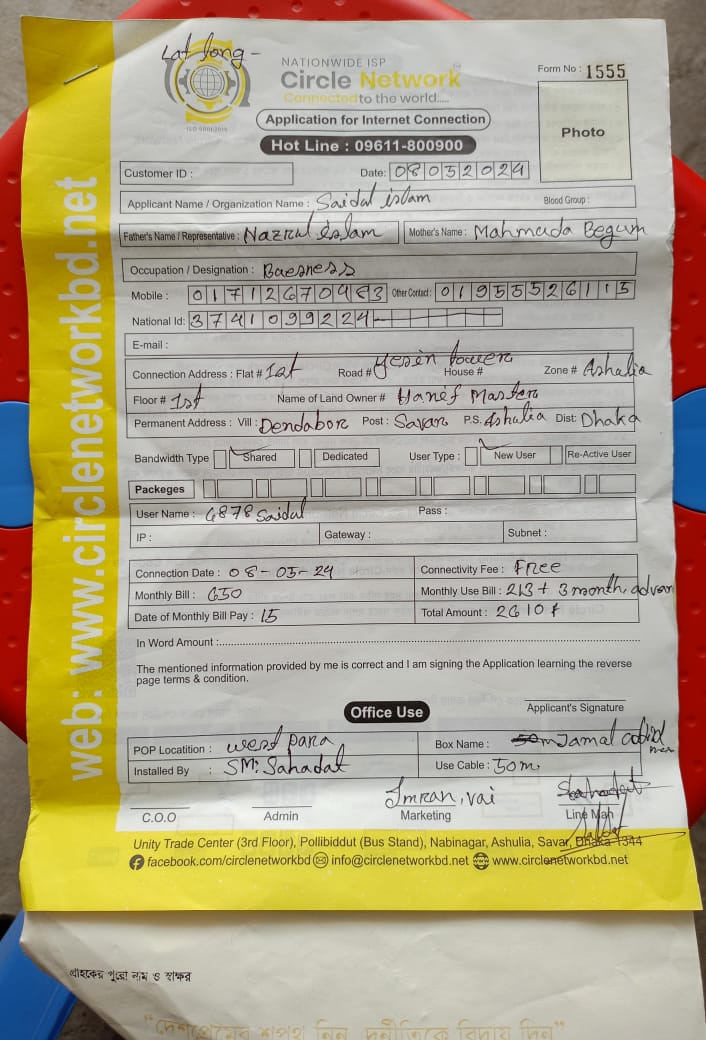 Lat long -
NATIONWIDE ISP
Circle Network
Connected to the world.....
ISO 9001:2015
Form No : 1555
Application for Internet Connection
Hot Line : 09611-800900
Photo
Customer ID :
Date: 08052024
Applicant Name / Organization Name : Saidal islam Blood Group :
Father's Name / Representative : Nazrul islam Mother's Name : Mahmuda Begum
Occupation / Designation : Baesness
Mobile : 01712670483 Other Contact : 01955526115
National Id: 3741099224
E-mail :
Connection Address : Flat # 1st Road # Yesin tower House # Zone # Ashalia
Floor # 1st Name of Land Owner # Hanef Master
Permanent Address : Vill : Dendabor Post : Savar P.S. Ashulia Dist: Dhaka
Bandwidth Type Shared Dedicated User Type : New User Re-Active User
Packeges
User Name : 6878 Saidal Pass :
IP : Gateway : Subnet :
Connection Date : 08-05-24 Connectivity Fee : Free
Monthly Bill : 650 Monthly Use Bill : 213 + 3 month, advan
Date of Monthly Bill Pay : 15 Total Amount : 2610 ৳
In Word Amount :
The mentioned information provided by me is correct and I am signing the Application learning the reverse
page terms & condition.
Office Use
Applicant's Signature
POP Locatition : west para Box Name : 50m Jamal
Installed By : SM: Sahadat Use Cable : 50m.
Imran, vai Sahadat
C.O.O Admin Marketing Line Man
Unity Trade Center (3rd Floor), Pollibiddut (Bus Stand), Nabinagar, Ashulia, Savar, Dhaka-1344
facebook.com/circlenetworkbd info@circlenetworkbd.net www.circlenetworkbd.net
web: www.circlenetworkbd.net
গ্রাহকের পুরো নাম ও স্বাক্ষর
"দেশপ্রেমের শপথ নিন, দুর্নীতিকে বিদায় দিন"